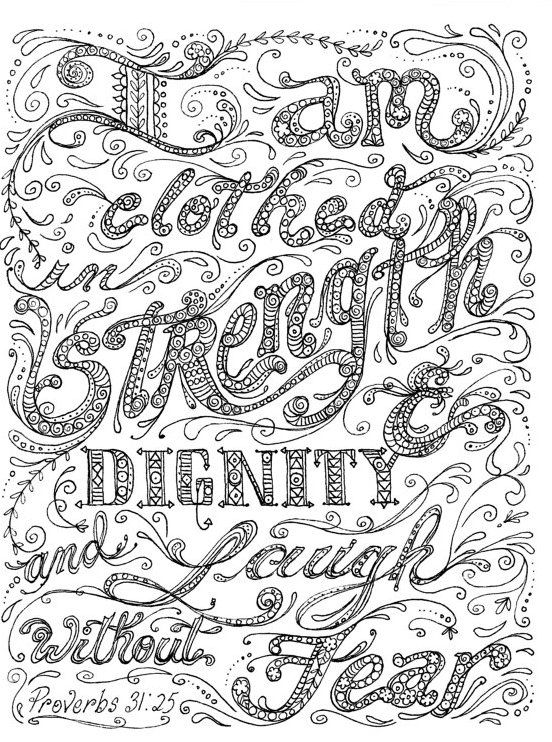 I am
clothed
in
Strength
&
DIGNITY
and Laugh
without Fear
Proverbs 31:25